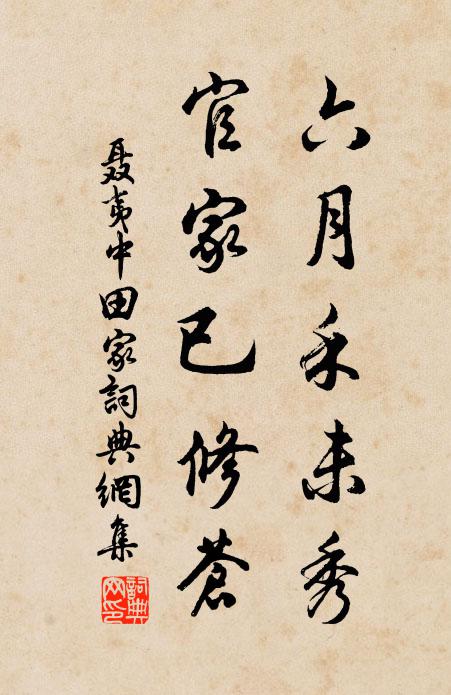 六月禾未秀
官家已修蒼
聂夷中田家詞典網集
詞典网印